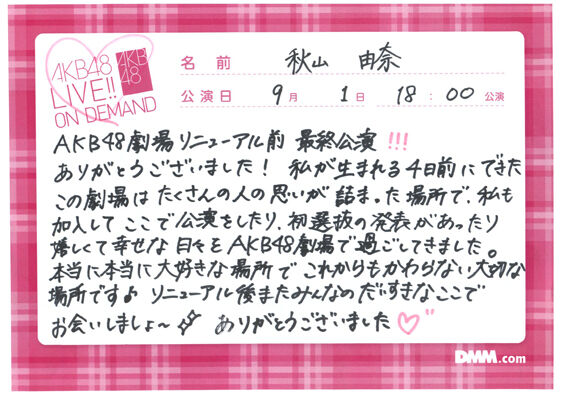 AKB48
LIVE!!
ON DEMAND
AKB
48
名前 秋山 由奈
公演日 9月 1日 18:00 公演
AKB48劇場リニューアル前 最終公演!!!
ありがとうございました! 私が生まれる4日前にできた
この劇場はたくさんの人の思いが詰まった場所で、私も
加入してここで公演をしたり、初選抜の発表があったり
嬉しくて幸せな日々をAKB48劇場で過ごしてきました。
本当に本当に大好きな場所でこれからもかわらない大切な
場所です♪ リニューアル後またみんなのだいすきなここで
お会いしましょ〜 ありがとうございました♡
DMM.com